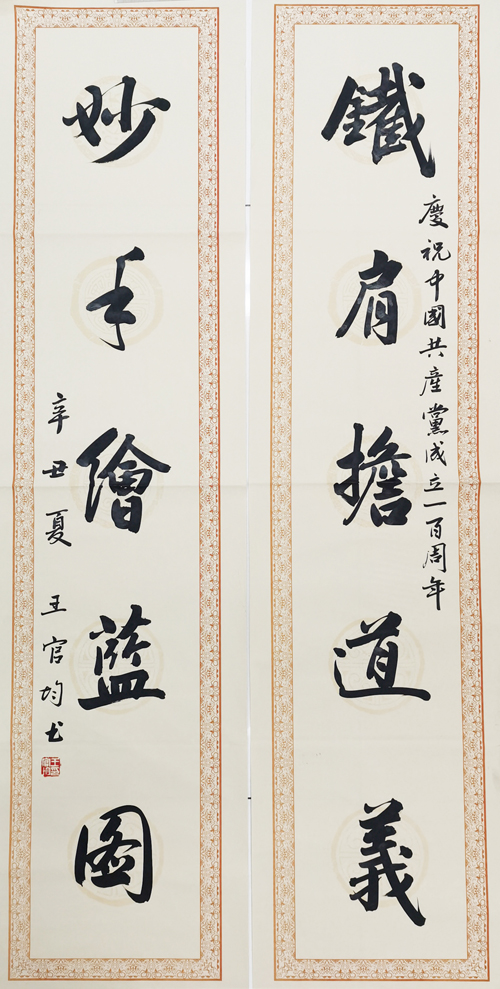 鐵肩擔道義
慶祝中國共產黨成立一百周年
妙手繪藍圖
辛丑夏 王官均书